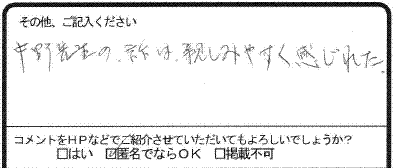 その他、ご記入ください
中野先生の、話は、親しみやすく感じれた。
コメントをHPなどでご紹介させていただいてもよろしいでしょうか？
□はい ☑匿名でならOK □掲載不可